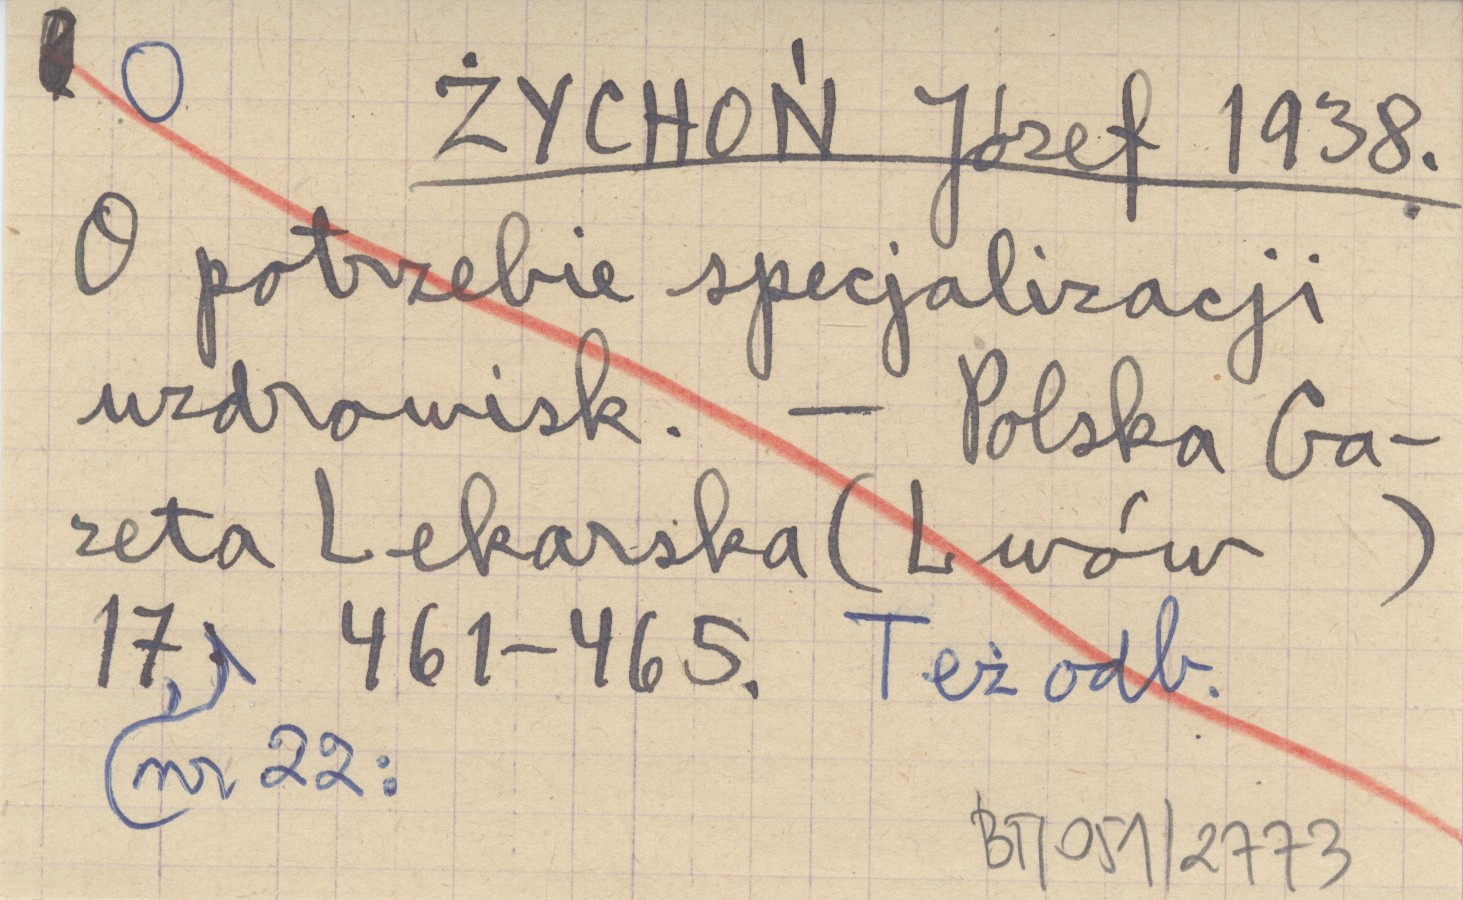 O
ŻYCHOŃ Józef 1938.
O potrzebie specjalizacji
uzdrowisk. — Polska Ga-
zeta Lekarska (Lwów )
17, 461-465. Też odb.
nr 22:
BT/051/2773